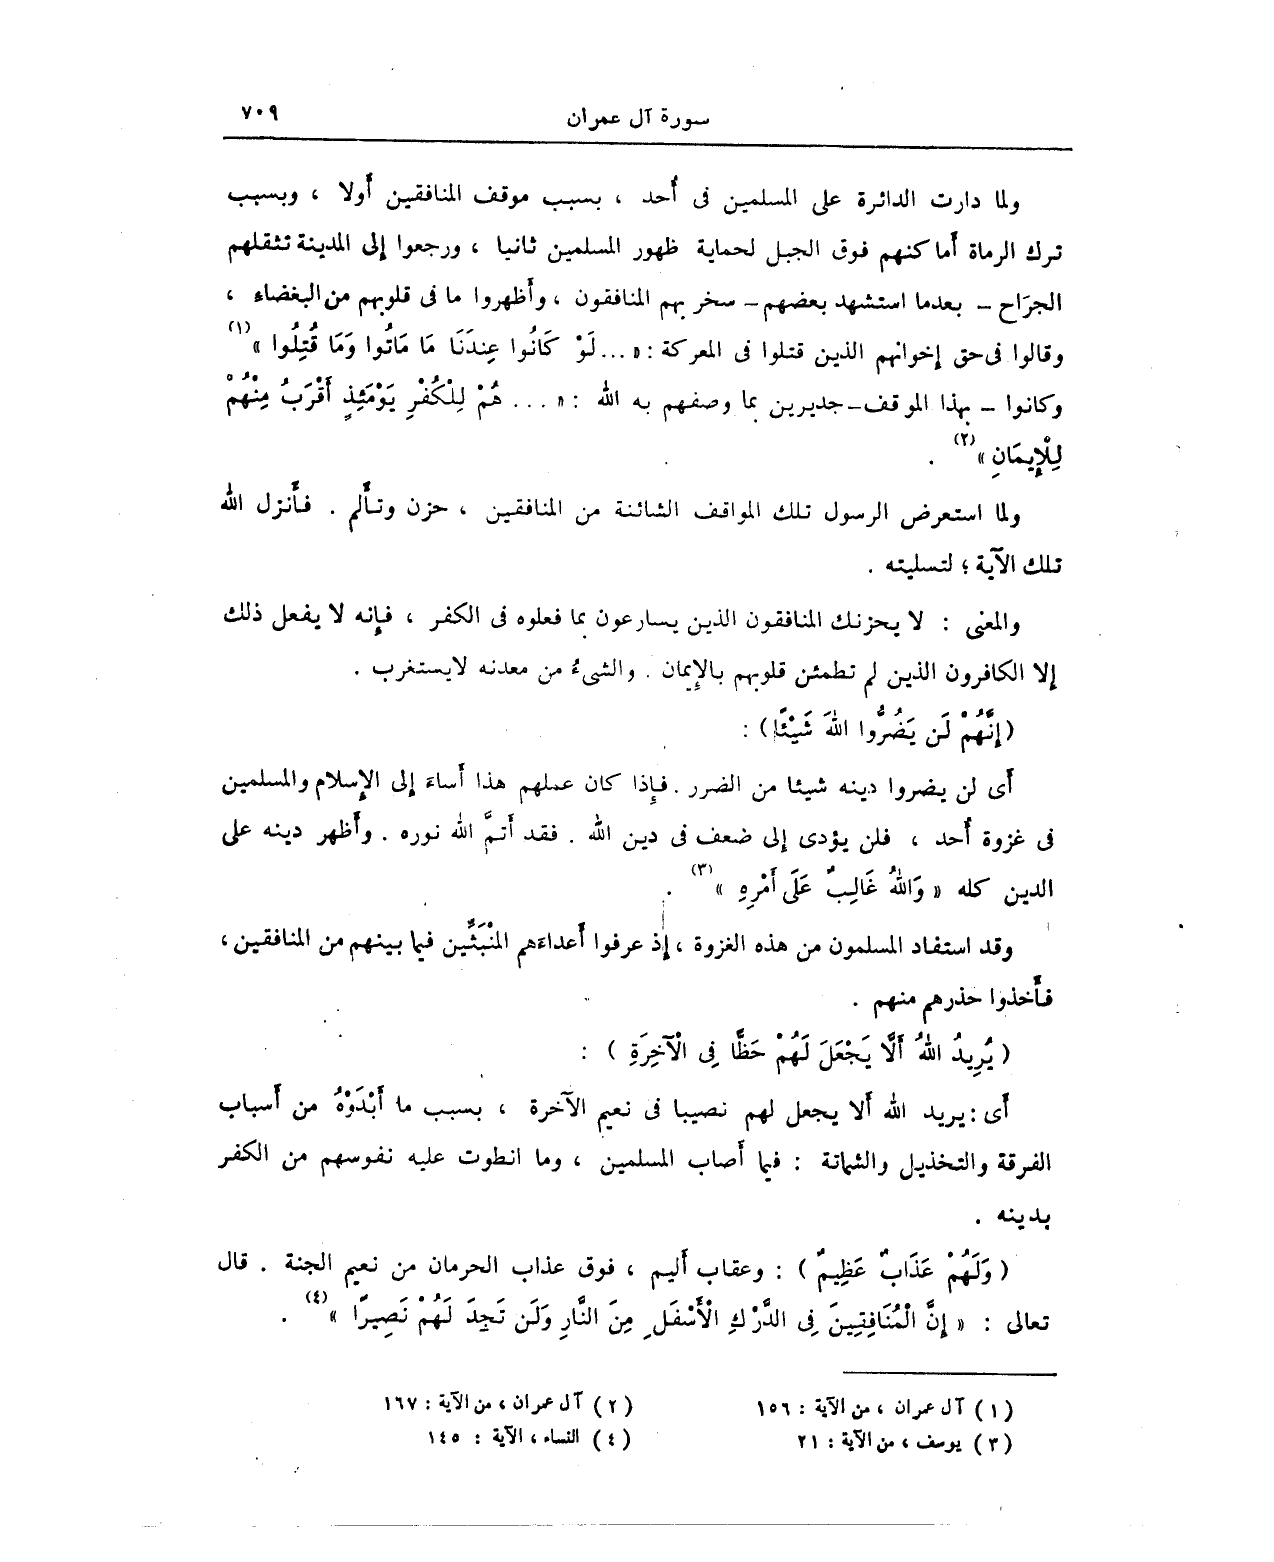 سورة آل عمران ٧٠٩
ولما دارت الدائرة على المسلمين فى أُحد ، بسبب موقف المنافقين أَولا ، وبسبب
ترك الرماة أَماكنهم فوق الجبل لحماية ظهور المسلمين ثانيا ، ورجعوا إلى المدينة تثقلهم
الجرَاح - بعدما استشهد بعضهم - سخر بهم المنافقون ، وأَظهروا ما فى قلوبهم من البغضاء ،
وقالوا فى حق إخوانهم الذين قتلوا فى المعركة : « ... لَوْ كَانُوا عِندَنَا مَا مَاتُوا وَمَا قُتِلُوا » (١)
وكانوا - بهذا الموقف - جديرين بما وصفهم به الله : « ... هُمْ لِلْكُفْرِ يَوْمَئِذٍ أَقْرَبُ مِنْهُمْ
لِلْإِيمَانِ » (٢) .
ولما استعرض الرسول تلك المواقف الشائنة من المنافقين ، حزن وتأَلم . فأَنزل الله
تلك الآية ؛ لتسليته .
والمعنى : لا يحزنك المنافقون الذين يسارعون بما فعلوه فى الكفر ، فإِنه لا يفعل ذلك
إلا الكافرون الذين لم تطمئن قلوبهم بالإِيمان . والشىءُ من معدنه لا يستغرب .
(إِنَّهُمْ لَن يَضُرُّوا اللهَ شَيْئًا) :
أَى لن يضروا دينه شيئا من الضرر . فإِذا كان عملهم هذا أَساءَ إلى الإِسلام والمسلمين
فى غزوة أُحد ، فلن يؤدى إلى ضعف فى دين الله . فقد أَتمَّ الله نوره . وأَظهر دينه على
الدين كله « وَاللهُ غَالِبٌ عَلَى أَمْرِهِ » (٣) .
وقد استفاد المسلمون من هذه الغزوة ، إِذ عرفوا أَعداءَهم المُنْبَثِّين فيما بينهم من المنافقين ،
فأَخذوا حذرهم منهم .
( يُرِيدُ اللهُ أَلَّا يَجْعَلَ لَهُمْ حَظًّا فِى الْآخِرَةِ ) :
أَى : يريد الله أَلا يجعل لهم نصيبا فى نعيم الآخرة ، بسبب ما أَبْدَوْهُ من أَسباب
الفرقة والتخذيل والشماتة : فيما أَصاب المسلمين ، وما انطوت عليه نفوسهم من الكفر
بدينه .
( وَلَهُمْ عَذَابٌ عَظِيمٌ ) : وعقاب أَليم ، فوق عذاب الحرمان من نعيم الجنة . قال
تعالى : « إِنَّ الْمُنَافِقِينَ فِى الدَّرْكِ الْأَسْفَلِ مِنَ النَّارِ وَلَن تَجِدَ لَهُمْ نَصِيرًا » (٤) .
(١) آل عمران ، من الآية : ١٥٦ (٢) آل عمران ، من الآية : ١٦٧
(٣) يوسف ، من الآية : ٢١ (٤) النساء ، الآية : ١٤٥